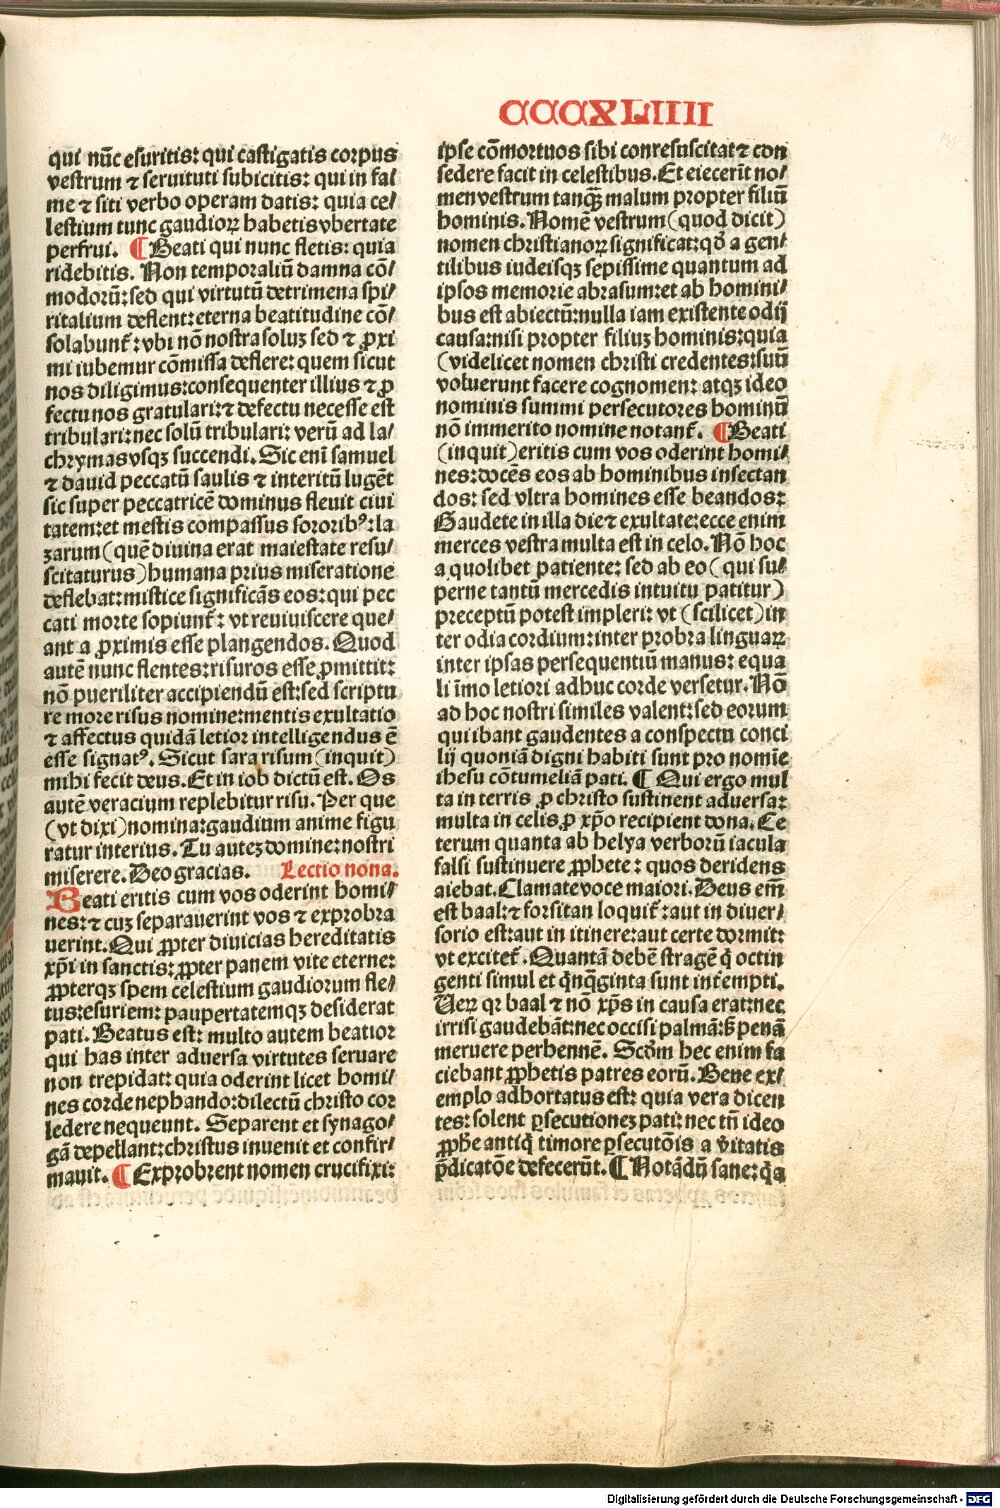 CCCXLIIII
qui nūc esuritis: qui castigatis corpus
vestrum ⁊ seruituti subicitis: qui in fa/
me ⁊ siti verbo operam datis: quia ce/
lestium tunc gaudioꝝ habetis vbertate
perfrui. ¶ Beati qui nunc fletis: quia
ridebitis. Non temporaliū damna cō/
modorū: sed qui virtutū detrimena spi/
ritalium deflent: eterna beatitudine cō/
solabunt᷑: vbi nō nostra soluꝫ sed ⁊ ꝓxi
mi iubemur cōmissa deflere: quem sicut
nos diligimus: consequenter illius ⁊ ꝓ
fectu nos gratulari: ⁊ defectu necesse est
tribulari: nec solū tribulari: verū ad la/
chrymas vsqꝫ succendi. Sic eni samuel
⁊ dauid peccatū saulis ⁊ interitū lugēt
sic super peccatricē dominus fleuit ciui
tatem: et mestis compassus sororibꝰ: la
zarum (quē diuina erat maiestate resu/
scitaturus) humana prius miseratione
deflebat: mistice significās eos: qui pec
cati morte sopiunt᷑: vt reuiuiscere que/
ant a ꝓximis esse plangendos. Quod
autē nunc flentes: risuros esse ꝓmittit:
nō pueriliter accipiendū est: sed scriptu
re more risus nomine: mentis exultatio
⁊ affectus quidā letior intelligendus ē
esse signatꝰ. Sicut sara risum (inquit)
mihi fecit deus. Et in iob dictū est. Os
autē veracium replebitur risu. Per que
(vt dixi) nomina: gaudium anime figu
ratur interius. Tu auteꝫ domine: nostri
miserere. Deo gracias. Lectio nona.
Beati eritis cum vos oderint homi/
nes: ⁊ cuꝫ separauerint vos ⁊ exprobra
uerint. Qui ꝓpter diuicias hereditatis
xp̄i in sanctis: ꝓpter panem vite eterne:
ꝓpterqꝫ spem celestium gaudiorum fle/
tus: esuriem: paupertatemqꝫ desiderat
pati. Beatus est: multo autem beatior
qui has inter aduersa virtutes seruare
non trepidat: quia oderint licet homi/
nes corde nephando: dilectū christo cor
ledere nequeunt. Separent et synago/
gā depellant: christus inuenit et confir/
mauit. ¶ Exprobrent nomen crucifixi:
ipse cōmortuos sibi conresuscitat ⁊ con
sedere facit in celestibus. Et eiecerīt no/
men vestrum tanqꝫ̄ malum propter filiū
hominis. Nomē vestrum (quod dicit)
nomen christianoꝝ significat: qđ a gen/
tilibus iudeisqꝫ sepissime quantum ad
ipsos memorie abrasum: et ab homini/
bus est abiectū: nulla iam existente odij
causa: nisi propter filiuꝫ hominis: quia
(videlicet nomen christi credentes: suū
voluerunt facere cognomen: atqꝫ ideo
nominis summi persecutores hominū
nō immerito nomine notant᷑. ¶ Beati
(inquit) eritis cum vos oderint homi/
nes: docēs eos ab hominibus insectan
dos: sed vltra homines esse beandos:
Gaudete in illa die ⁊ exultate: ecce enim
merces vestra multa est in celo. Nō hoc
a quolibet patiente: sed ab eo (qui su/
perne tantū mercedis intuitu patitur)
preceptū potest impleri: vt (scilicet) in
ter odia cordium: inter probra linguaꝝ
inter ipsas persequentiū manus: equa
li īmo letiori adhuc corde versetur. Nō
ad hoc nostri similes valent: sed eorum
qui ibant gaudentes a conspectu conci
lij quoniā digni habiti sunt pro nomīe
ihesu cōtumeliā pati. ¶ Qui ergo mul
ta in terris ꝓ christo sustinent aduersa:
multa in celis ꝓ xp̄o recipient dona. Ce
terum quanta ab helya verborū iacula
falsi sustinuere ꝓphete: quos deridens
aiebat. Clamate voce maiori. Deus em̄
est baal: ⁊ forsitan loquit᷑: aut in diuer/
sorio est: aut in itinere: aut certe dormit:
vt excitet᷑. Quantā debē stragē q̄ octin
genti simul et q̄nqꝗginta sunt int̄empti.
Ueꝝ qꝛ baal ⁊ nō xp̄s in causa erat: nec
irrisi gaudebāt: nec occisi palmā: s̄ penā
meruere perhennē. Scd̄m hec enim fa
ciebant ꝓphetis patres eorū. Bene ex/
emplo adhortatus est: quia vera dicen
tes: solent ꝑsecutioneꝫ pati: nec tn̄ ideo
ꝓph̄e antiq̄ timore ꝑsecutōis a v̄itatis
p̄dicatōe defecerūt. ¶ Notādū sane: q̄a
Digitalisierung gefördert durch die Deutsche Forschungsgemeinschaft - DFG